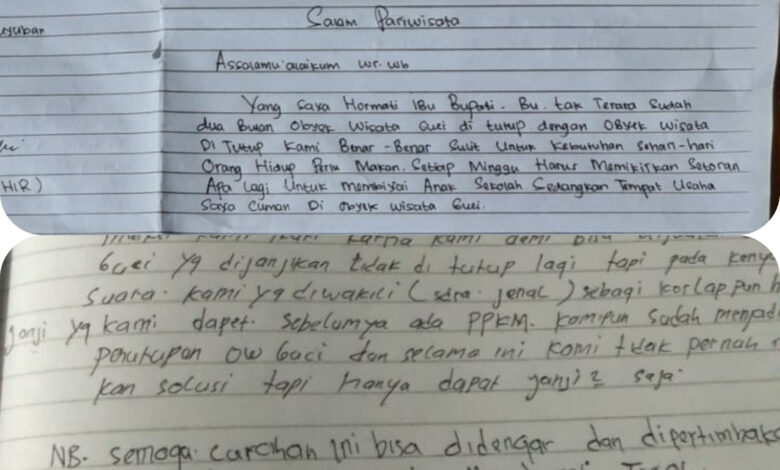 Salam Pariwisata
Assalamu'alaikum wr. wb
Yang saya Hormati IBu Bupati. Bu. tak Terasa Sudah
dua Bulan Obyek Wisata Guci di tutup dengan OByek wisata
Di Tutup Kami Benar-Benar Sulit Untuk Kebutuhan Sehari-hari
HIR)
Orang Hidup Perlu Makan. Setiap Minggu Harus Memikirkan Setoran
Apa lagi Untuk membiyai Anak Sekolah Sedangkan Tempat Usaha
Saya Cuman Di obyek wisata Guci.
karna kami demi bisa
Guci yg dijanjikan tidak di tutup lagi tapi pada
suara. kami yg diwakili (sdra. jenal) sebagi korlap pun
janji yg kami dapet. sebelumya ada PPKM. kamipun sudah
penutupan OW Guci dan selama ini kami tidak pernah
kan solusi tapi hanya dapat janji2 saja.
NB. semoga. curahan ini bisa didengar dan